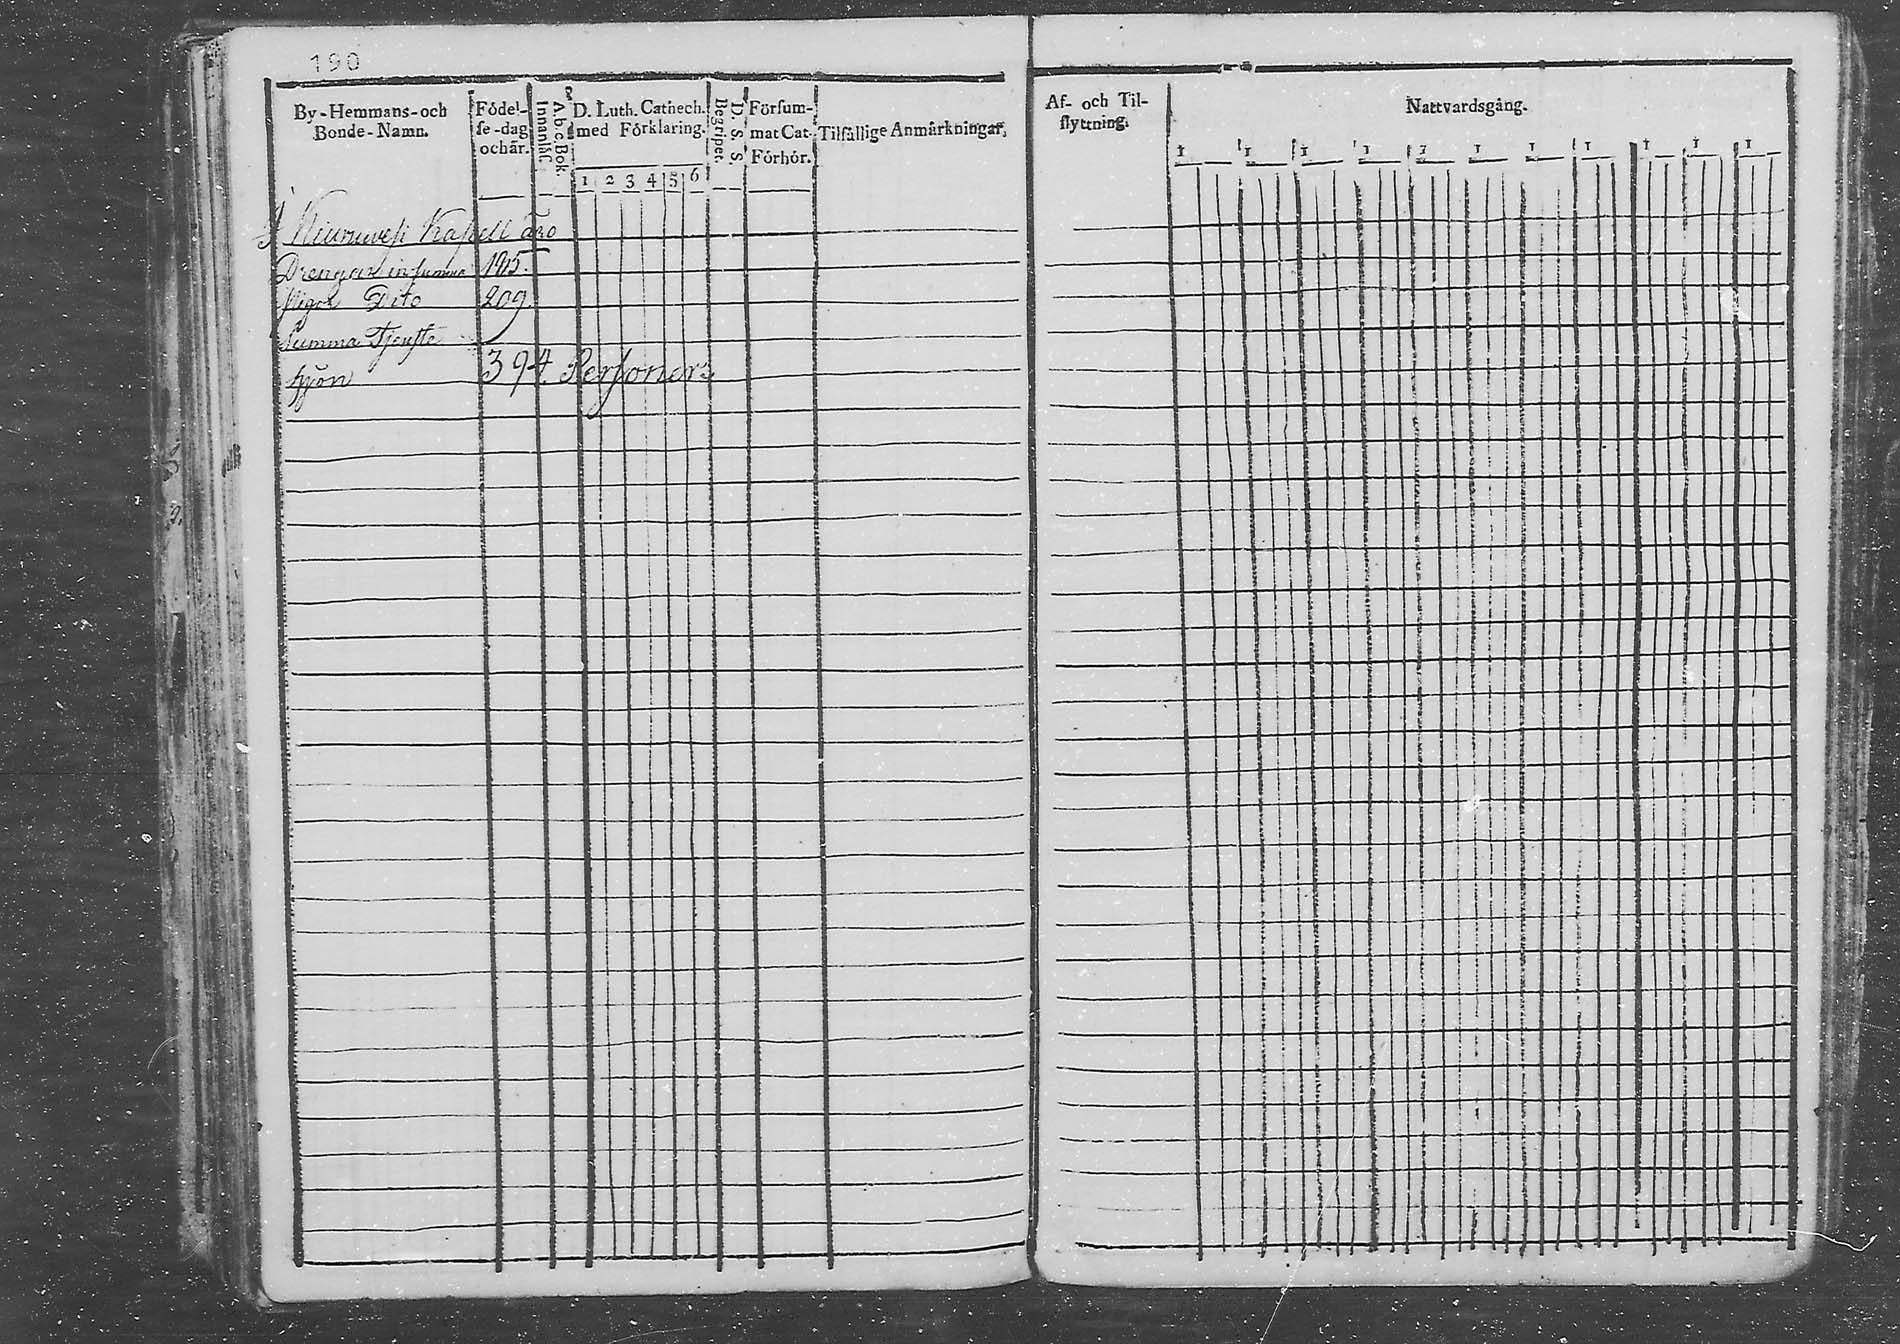 190
By-Hemmans-och Bonde-Namn.
Födel-se-dag och år.
A.b.c.Bok Innanläs.
D. Luth. Cathech. med Förklaring.
1 2 3 4 5 6
D. S. S. Begriper.
Försum-mat Cat-Förhör.
Tilfällige Anmärkningar.
Af- och Til-flyttning.
Nattvardsgång.
1 1 1 1 1 1 1 1 1 1 1
I Kiuruvesi Kapell äro
Drengar in summa
Pigor Dito 209.
Summa Tjenste
hjon 394. Personer